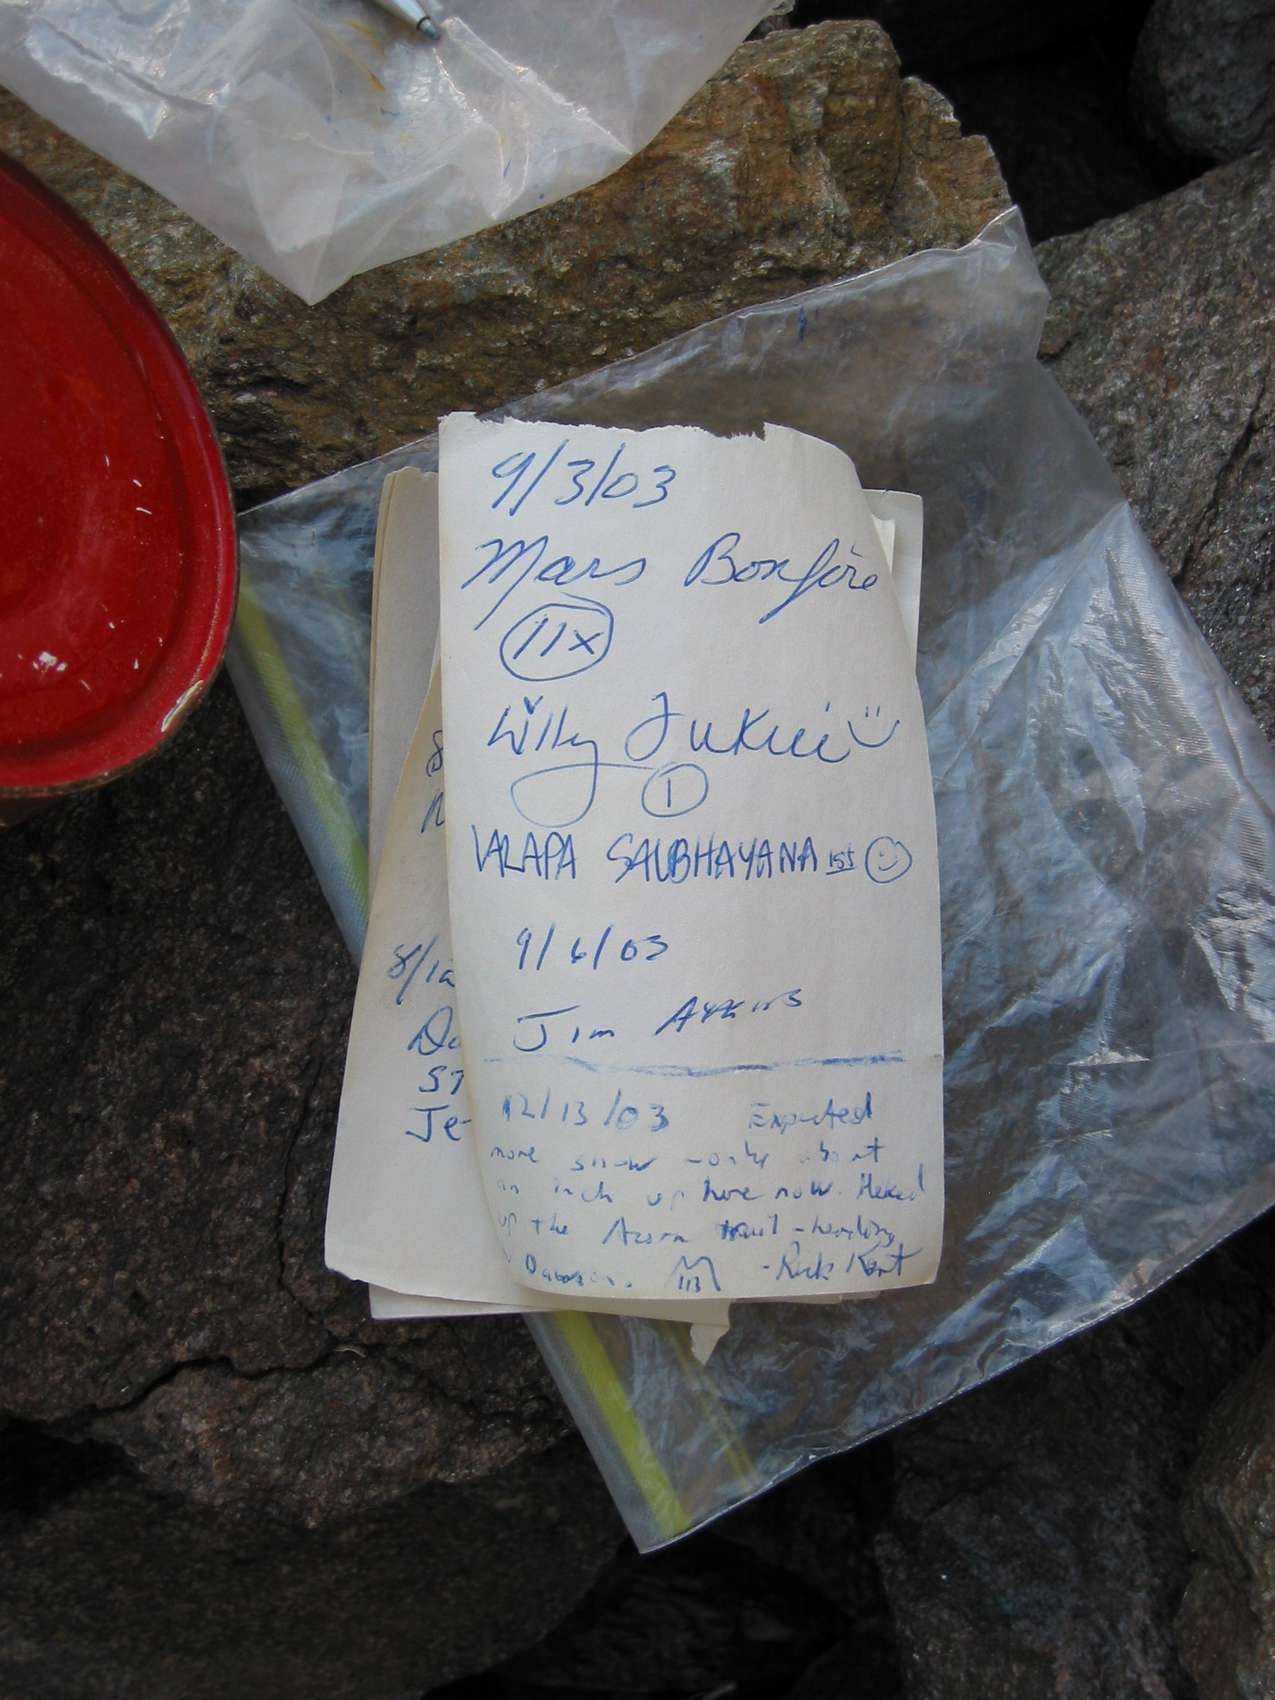 9/3/03
Mars Bonfire
11x
Willy
1
VALAPA SAUBHAYANA 1st
9/6/03
Jim
12/13/03 Expected
more snow - only about
an inch up here now. Hiked
up the Acorn trail - heading
Dawson. - Rick Kent
8/12
ST
Je